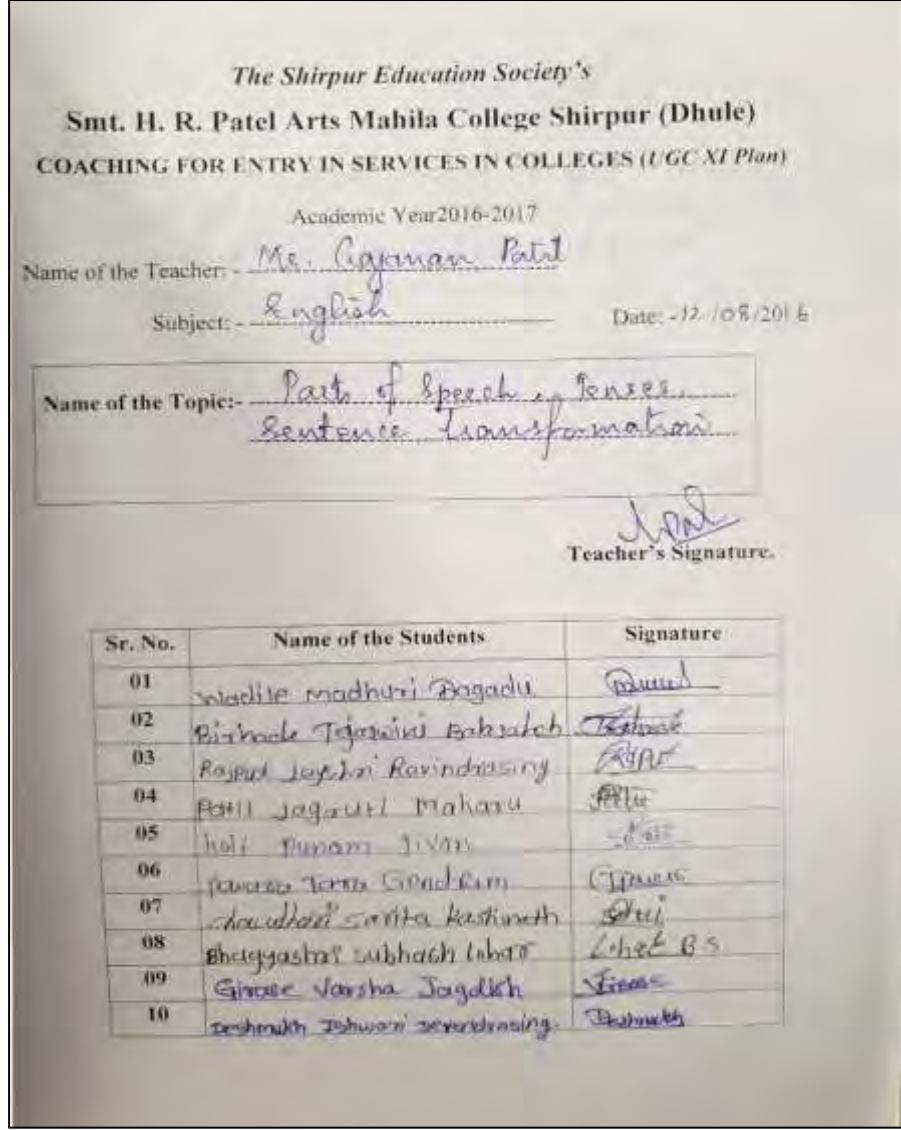 The Shirpur Education Society's
Smt. H. R. Patel Arts Mahila College Shirpur (Dhule)
COACHING FOR ENTRY IN SERVICES IN COLLEGES (UGC XI Plan)
Academic Year2016-2017
Name of the Teacher: - Mr. Gajanan Patil
Subject: - English Date: -12/08/2016
Name of the Topic:- Parts of Speech, Tenses,
Sentence transformation
Teacher's Signature.
Sr. No. Name of the Students Signature
01 Wadile Madhuri Dagadu
02 Birhade
03 Rajput Jayshri Ravindrasing
04 Patil Jagruti Maharu
05 Koli Punam Jivan
06
07 Savita Kashinath
08 Bhagyashri Subhash Lohar B S
09 Girase Varsha Jagdish
10 Deshmukh Ishwari Devendrasing. Deshmukh